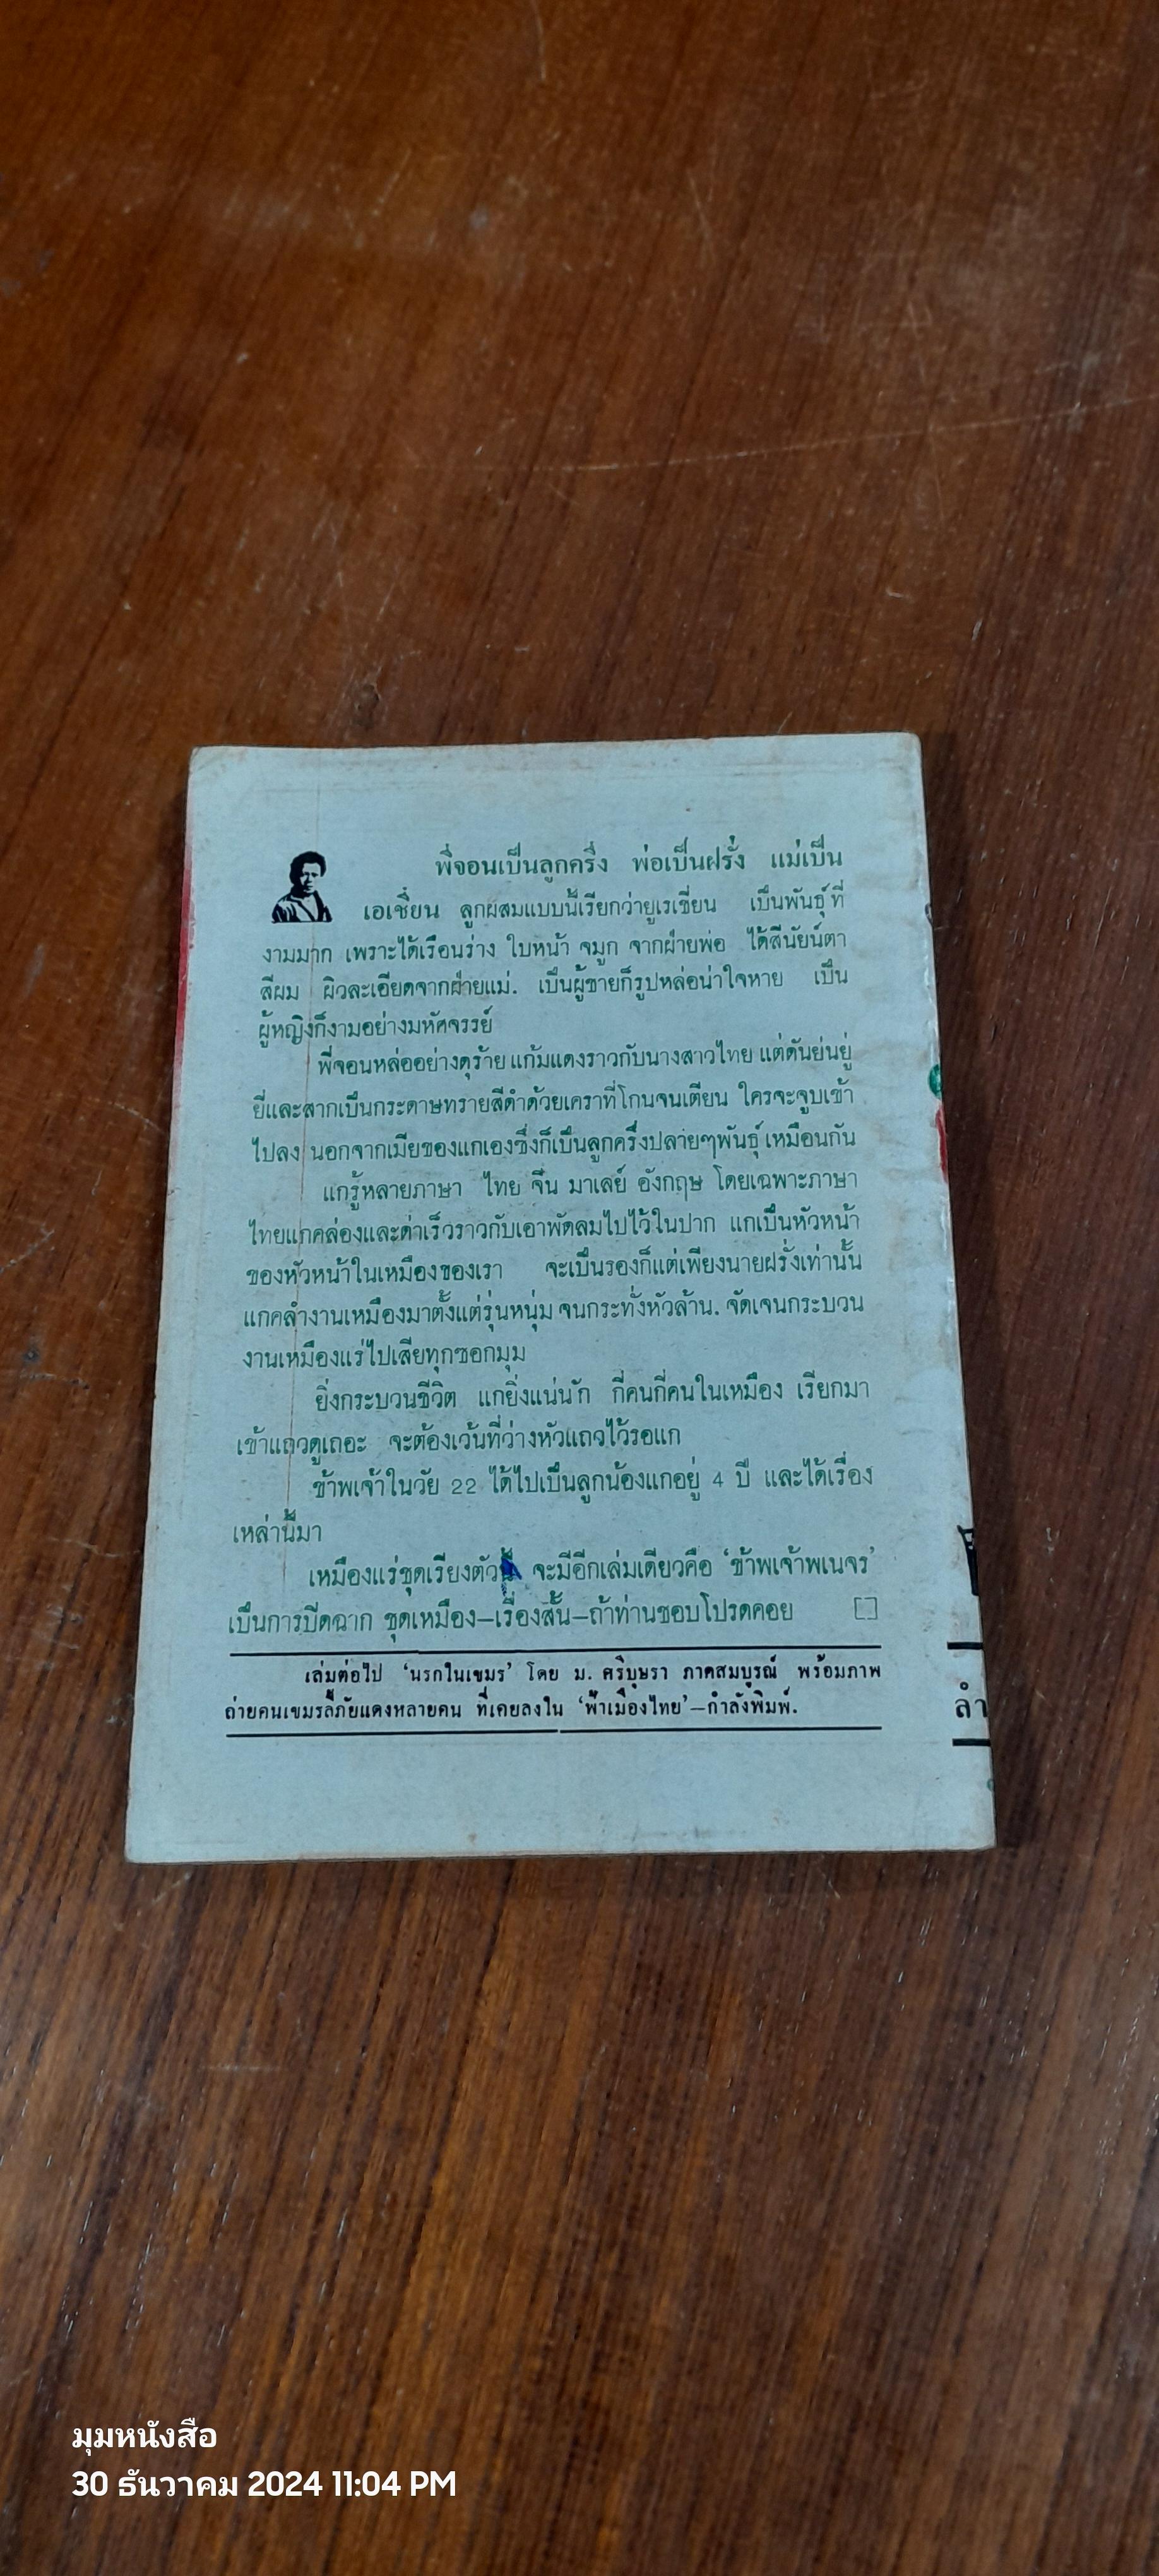 พี่จอนเป็นลูกครึ่ง พ่อเป็นฝรั่ง แม่เป็น
เอเชี่ยน ลูกผสมแบบนี้เรียกว่ายูเรเชี่ยน เป็นพันธุ์ที่
งามมาก เพราะได้เรือนร่าง ใบหน้า จมูก จากฝ่ายพ่อ ได้สีนัยน์ตา
สีผม ผิวละเอียดจากฝ่ายแม่. เป็นผู้ชายก็รูปหล่อน่าใจหาย เป็น
ผู้หญิงก็งามอย่างมหัศจรรย์
พี่จอนหล่ออย่างดุร้าย แก้มแดงราวกับนางสาวไทย แต่ดันย่นยู่
ยี่และสากเป็นกระดาษทรายสีดำด้วยเคราที่โกนจนเตียน ใครจะจูบเข้า
ไปลง นอกจากเมียของแกเองซึ่งก็เป็นลูกครึ่งปลายๆพันธุ์เหมือนกัน
แกรู้หลายภาษา ไทย จีน มาเลย์ อังกฤษ โดยเฉพาะภาษา
ไทยแกคล่องและด่าเร็วราวกับเอาพัดลมไปไว้ในปาก แกเป็นหัวหน้า
ของหัวหน้าในเหมืองของเรา จะเป็นรองก็แต่เพียงนายฝรั่งเท่านั้น
แกคลำงานเหมืองมาตั้งแต่รุ่นหนุ่ม จนกระทั่งหัวล้าน. จัดเจนกระบวน
งานเหมืองแร่ไปเสียทุกซอกมุม
ยิ่งกระบวนชีวิต แกยิ่งแน่นัก กี่คนกี่คนในเหมือง เรียกมา
เข้าแถวดูเถอะ จะต้องเว้นที่ว่างหัวแถวไว้รอแก
ข้าพเจ้าในวัย 22 ได้ไปเป็นลูกน้องแกอยู่ 4 ปี และได้เรื่อง
เหล่านี้มา
เหมืองแร่ชุดเรียงตัวนี้ จะมีอีกเล่มเดียวคือ ‘ข้าพเจ้าพเนจร’
เป็นการปิดฉาก ชุดเหมือง–เรื่องสั้น–ถ้าท่านชอบโปรดคอย
เล่มต่อไป ‘นรกในเขมร’ โดย ม. ศรีบุษรา ภาคสมบูรณ์ พร้อมภาพ
ถ่ายคนเขมรลี้ภัยแดงหลายคน ที่เคยลงใน ‘ฟ้าเมืองไทย’–กำลังพิมพ์.
มุมหนังสือ
30 ธันวาคม 2024 11:04 PM